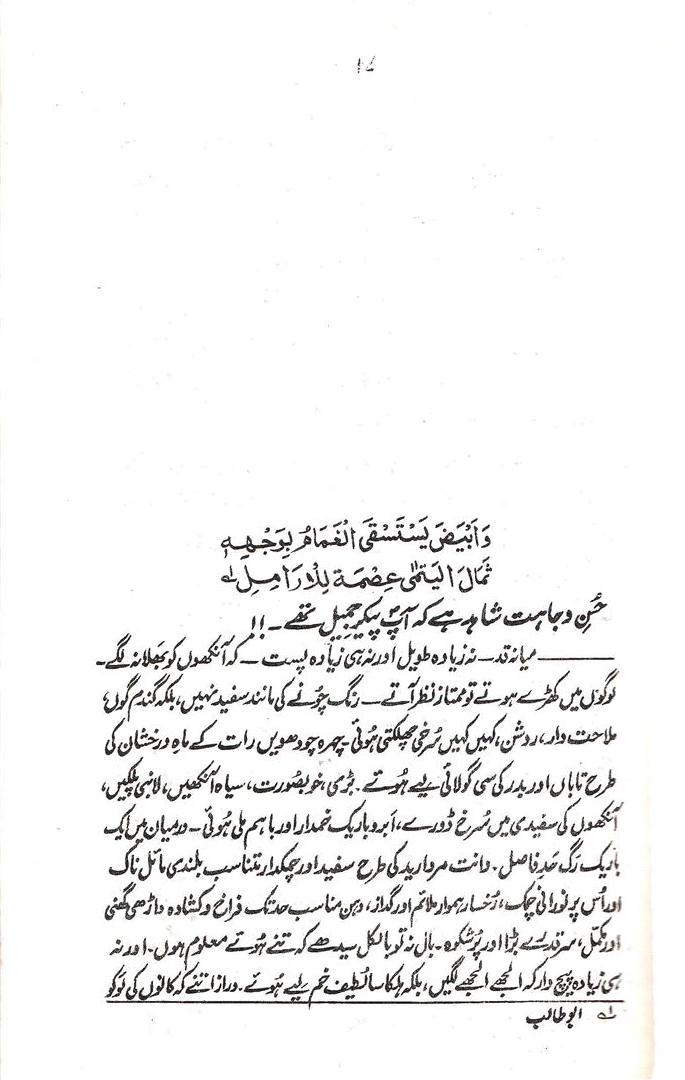 وَاَبْيَضَ يَسْتَسْقَى الْغَمَامُ بِوَجْهِهٖ
ثِمَالَ الْيَتٰمٰى عِصْمَة لِلْاَرَامِلِ ؎۱
حُسنِ وجاہت شاہد ہے کہ آپؐ پیکرِ جمیل تھے۔!!
——— میانہ قد۔ نہ زیادہ طویل اور نہ ہی زیادہ پست۔ کہ آنکھوں کو بھلا نہ لگے۔
لوگوں میں کھڑے ہوتے تو ممتاز نظر آتے۔ رنگ چونے کی مانند سفید نہیں، بلکہ گندم گوں،
ملاحت دار، روشن، کہیں کہیں سُرخی جھلکتی ہوئی۔ چہرہ چودھویں رات کے ماہِ درخشاں کی
طرح تاباں اور بدر کی سی گولائی لیے ہُوئے۔ بڑی، خوبصورت، سیاہ آنکھیں، لانبی پلکیں،
آنکھوں کی سفیدی میں سُرخ ڈورے، اَبرو باریک خمدار اور باہم ملی ہُوئی۔ درمیان میں ایک
باریک رَگ حدِ فاصل۔ دانت مروارید کی طرح سفید اور چمکدار متناسب بلندی مائل ناک
اور اُس پر نورانی چمک، رُخسار ہموار ملائم اور گداز، دہن مناسب حد تک فراخ و کشادہ داڑھی گھنی
اور مکمل، سر قدرے بڑا اور پُرشکوہ۔ بال نہ تو بالکل سیدھے کہ تنے ہُوئے معلوم ہوں۔ اور نہ
ہی زیادہ پیچ دار کہ الجھے الجھے لگیں، بلکہ ہلکا سا لطیف خم لیے ہُوئے۔ دراز اتنے کہ کانوں کی لَو کو
؎۱ ابو طالب